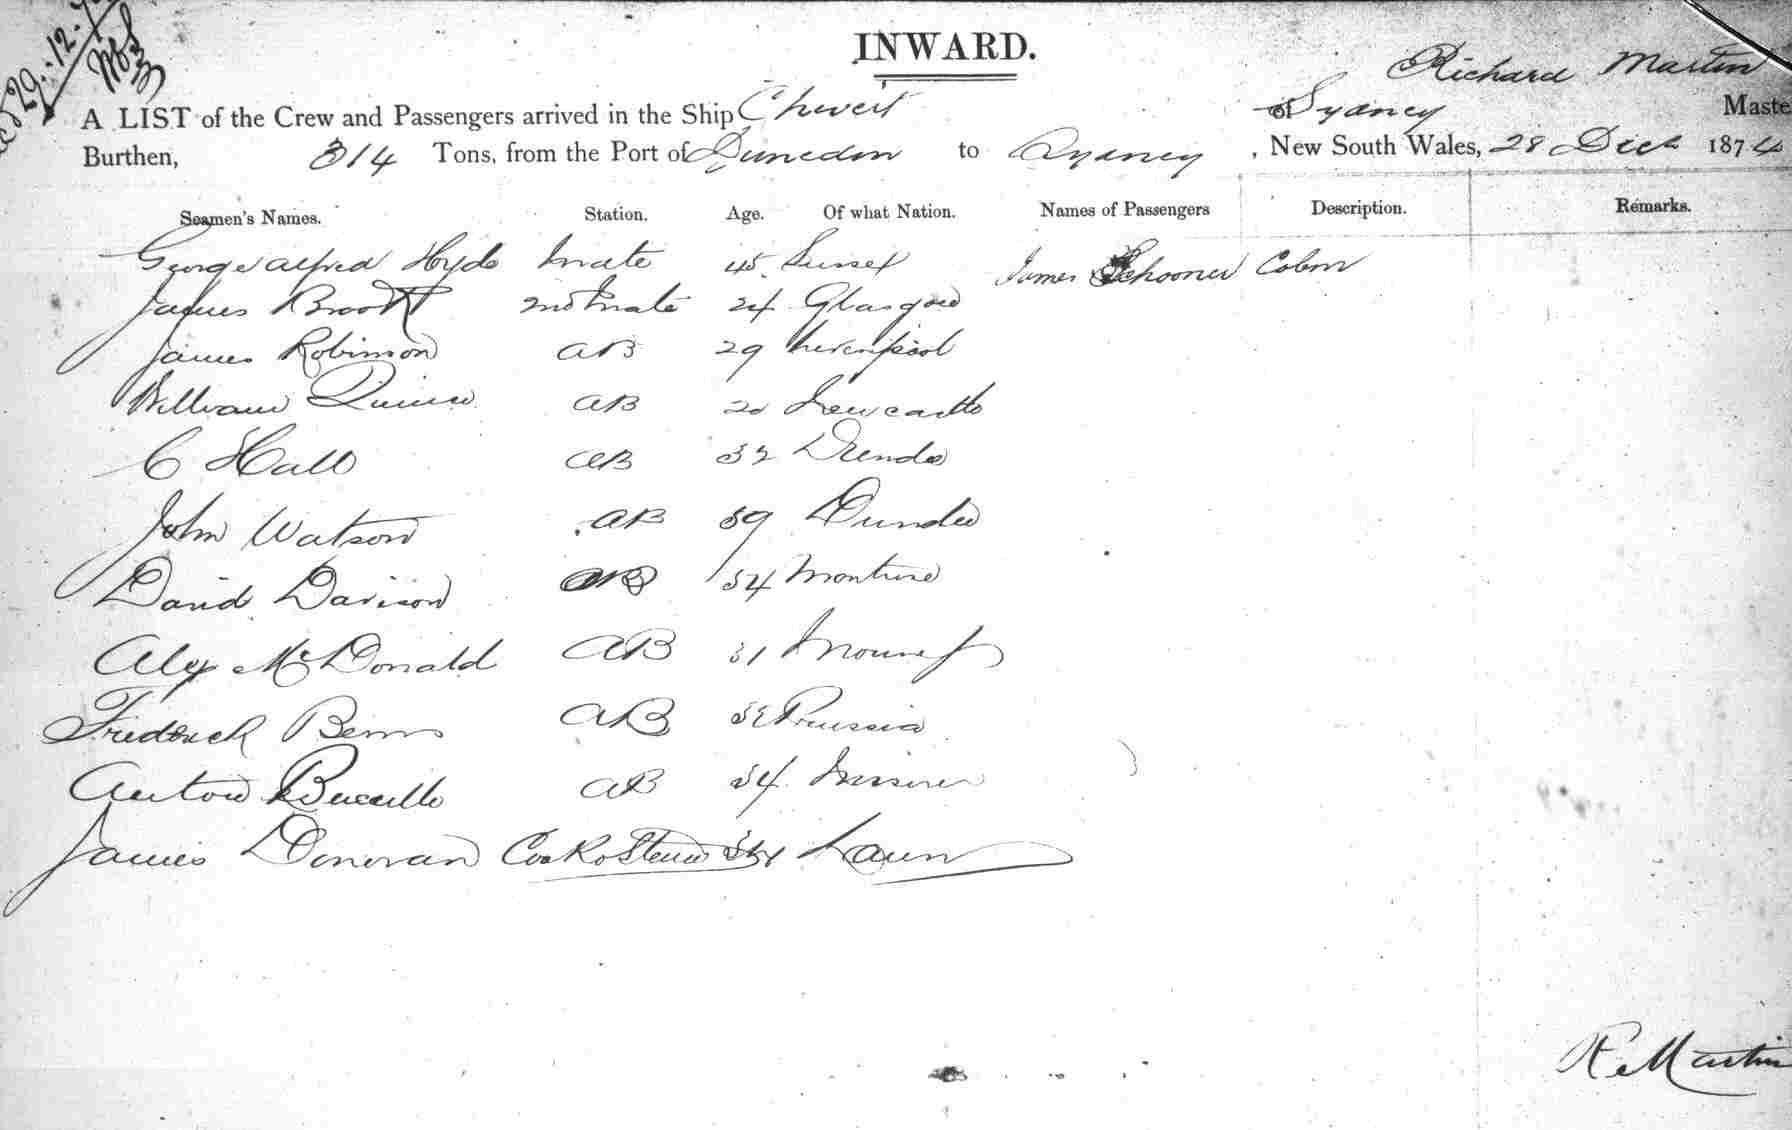 29.12.
INWARD.
Richard Martin
A LIST of the Crew and Passengers arrived in the Ship Chevert of Sydney Maste
Burthen, 314 Tons, from the Port of Dunedin to Sydney, New South Wales, 28 Decr 1874
Seamen's Names. Station. Age. Of what Nation. Names of Passengers Description. Remarks.
George Alfred Hyde Mate 45 Sussex James Schooner Cabin
James Brook 2nd Mate 24 Glasgow
James Robinson AB 29 Liverpool
William AB 20 Newcastle
C Hall AB 32 Dundee
John Watson AB 39 Dundee
David Davison AB 34 Montrose
Alex McDonald AB 31
Frederick AB Prussia
AB 34
James Donovan Cook & Steward
R Martin